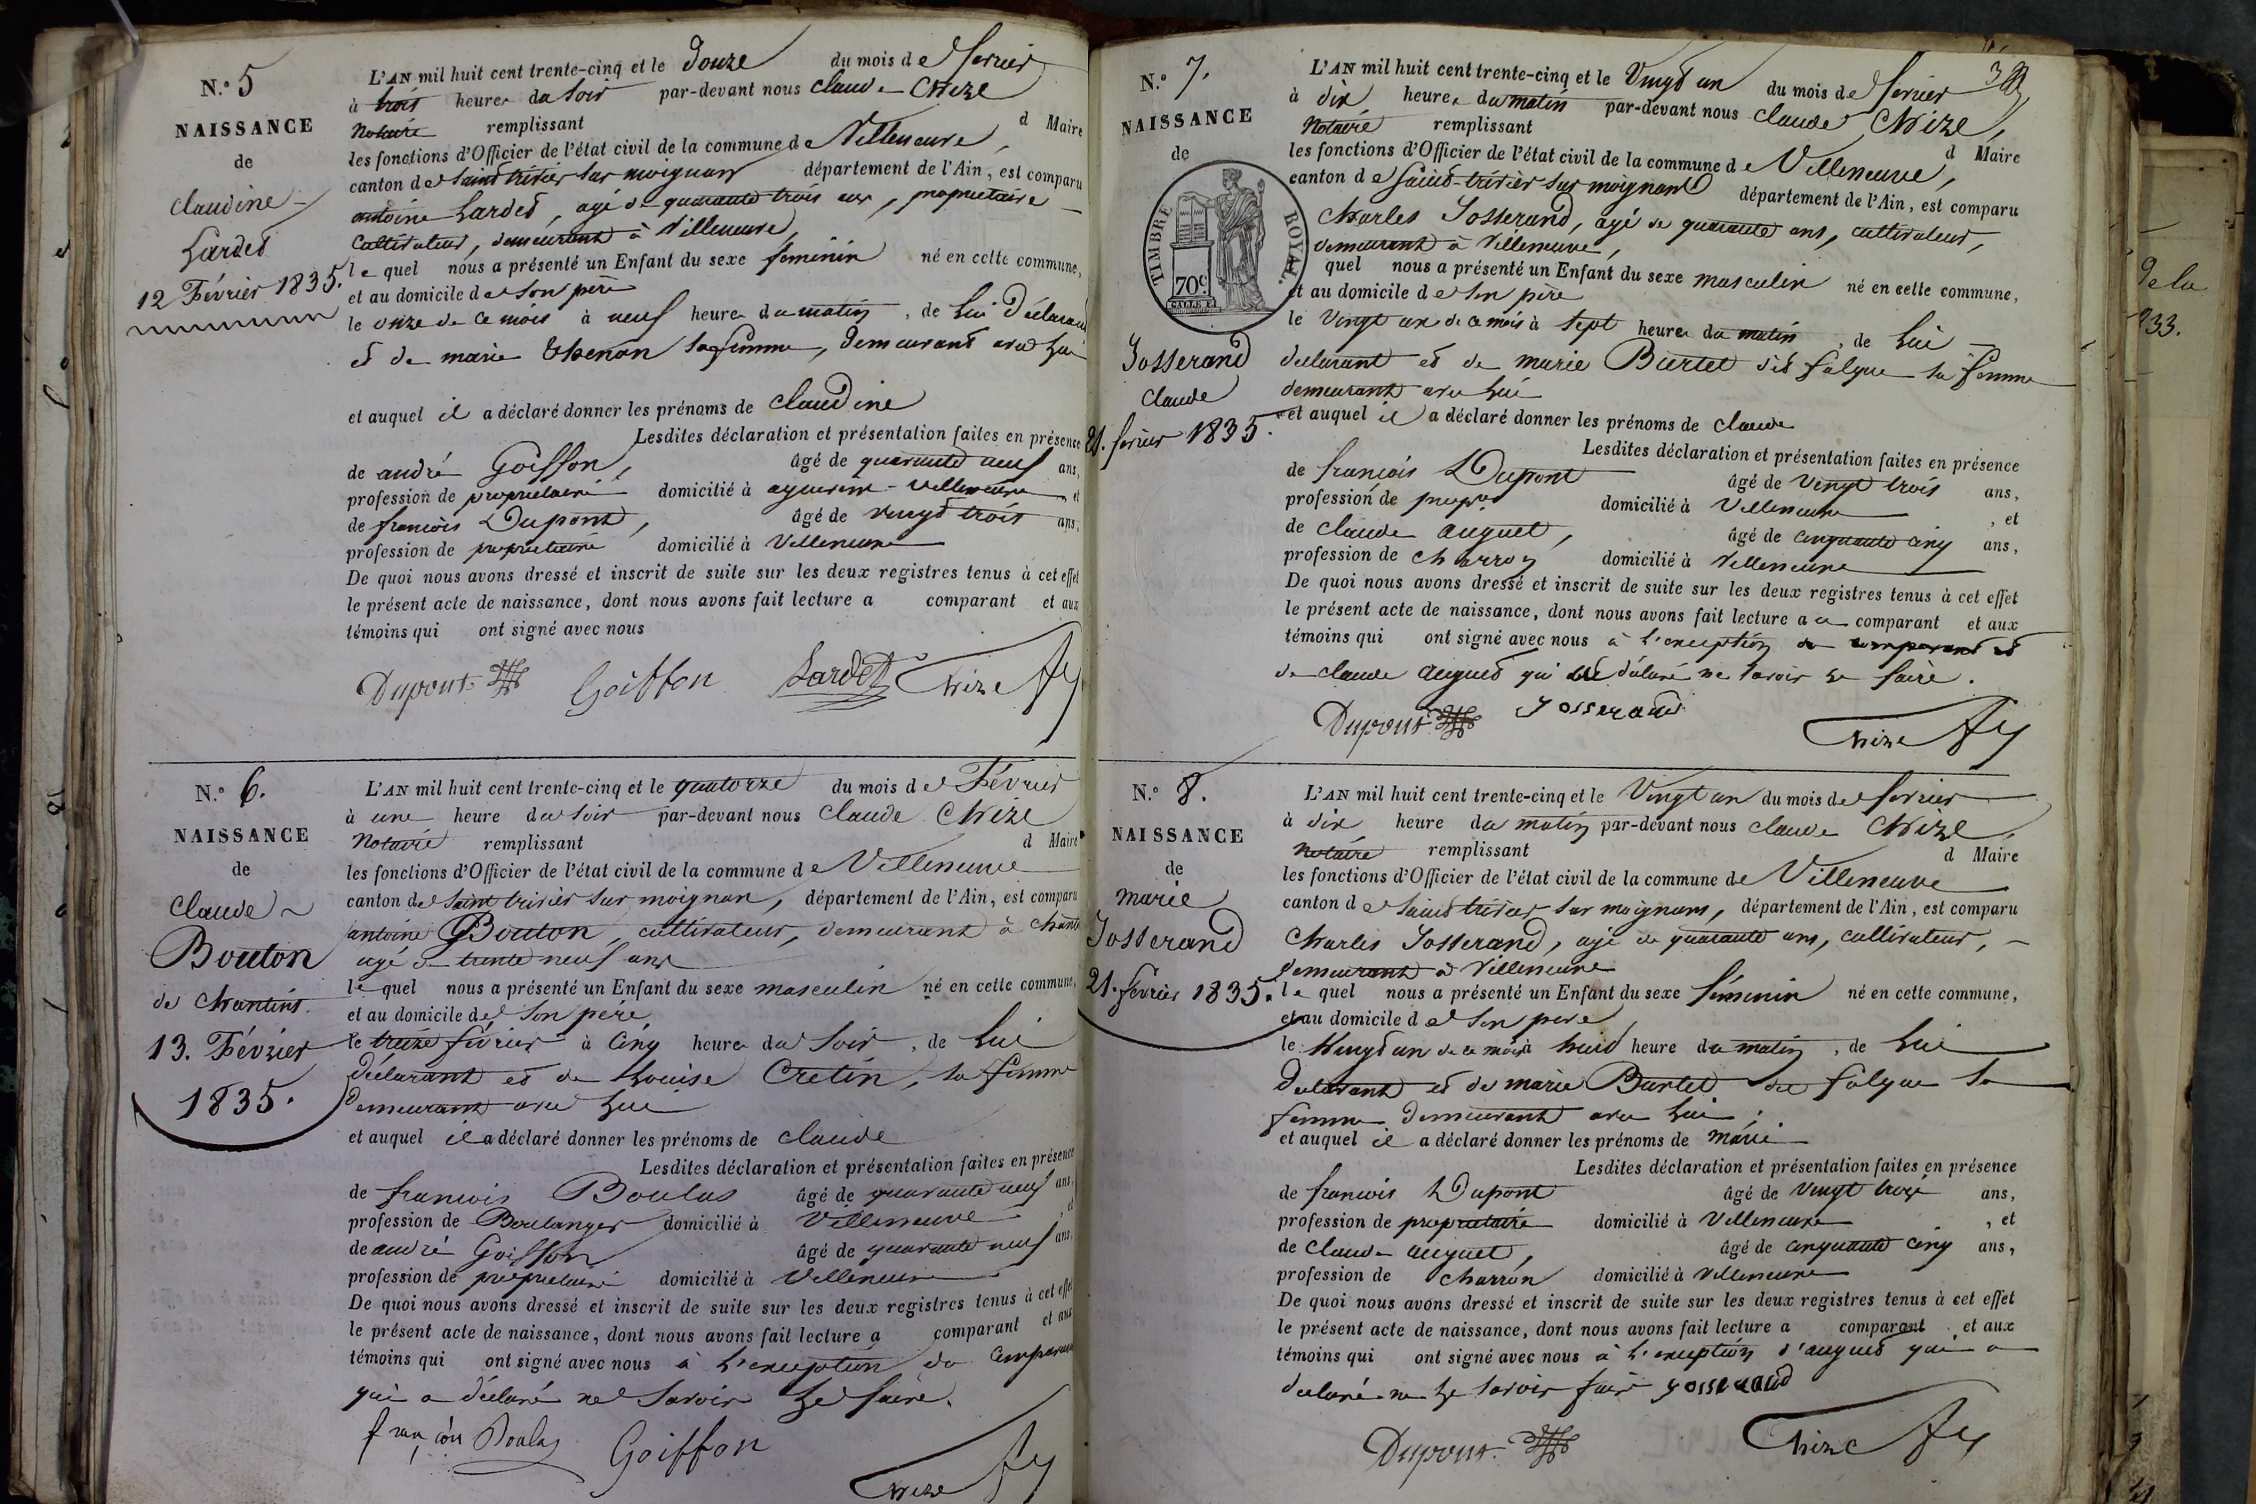 N.° 5
NAISSANCE
de
Claudine
Lardet
12 Février 1835.
L'AN mil huit cent trente-cinq et le douze du mois de fevrier
à trois heures du soir par-devant nous Claude Chize
Notaire remplissant d Maire
les fonctions d'Officier de l'état civil de la commune de Villeneuve,
canton de Saint trivier sur moignans département de l'Ain, est comparu
antoine Lardet, agé de quarante trois ans, proprietaire
Cultivateur, demeurant à Villeneuve,
le quel nous a présenté un Enfant du sexe feminin né en cette commune,
et au domicile de son père
le onze de ce mois à neuf heures du matin, de Lui déclarant
et de marie Thenon sa femme, demeurant avec Lui
et auquel il a déclaré donner les prénoms de Claudine
Lesdites déclaration et présentation faites en présence
de andré Goiffon, âgé de quarante neuf ans,
profession de proprietaire domicilié à Villeneuve, et
de françois Dupont, âgé de vingt trois ans,
profession de proprietaire domicilié à Villeneuve
De quoi nous avons dressé et inscrit de suite sur les deux registres tenus à cet effet
le présent acte de naissance, dont nous avons fait lecture a comparant et aux
témoins qui ont signé avec nous
Dupont Goiffon Lardet Chize
N.° 6.
NAISSANCE
de
Claude
Bouton
de Chanteins.
13. Février
1835.
L'AN mil huit cent trente-cinq et le quatorze du mois de Février
à une heure du soir par-devant nous Claude Chize
Notaire remplissant d Maire
les fonctions d'Officier de l'état civil de la commune de Villeneuve
canton de Saint trivier sur moignans, département de l'Ain, est comparu
antoine Bouton, cultivateur, demeurant à
agé de trente neuf ans
le quel nous a présenté un Enfant du sexe masculin né en cette commune,
et au domicile de son père
le treize février à cinq heures du soir, de Lui
déclarant et de Louise Cretin, sa femme
demeurant avec Lui
et auquel il a déclaré donner les prénoms de claude
Lesdites déclaration et présentation faites en présence
de francois Boulas âgé de quarante neuf ans,
profession de Boulanger domicilié à Villeneuve, et
de andré Goiffon âgé de quarante neuf ans,
profession de proprietaire domicilié à Villeneuve
De quoi nous avons dressé et inscrit de suite sur les deux registres tenus à cet effet
le présent acte de naissance, dont nous avons fait lecture a comparant et aux
témoins qui ont signé avec nous à L'exception du comparant
qui a déclaré ne savoir Le faire.
françois Boulas Goiffon
Chize
N.° 7.
NAISSANCE
de
TIMBRE ROYAL.
70c
Josserand
Claude
21. fevrier 1835.
L'AN mil huit cent trente-cinq et le Vingt un du mois de fevrier
à dix heures du matin par-devant nous Claude Chize,
Notaire remplissant d Maire
les fonctions d'Officier de l'état civil de la commune de Villeneuve,
canton de Saint-trivier sur moignans département de l'Ain, est comparu
Charles Josserand, agé de quarante ans, cultivateur,
demeurant à Villeneuve,
quel nous a présenté un Enfant du sexe masculin né en cette commune,
et au domicile de son père
le Vingt un de ce mois à sept heures du matin, de Lui
declarant et de marie Burtet dit falque sa femme
demeurant avec Lui
et auquel il a déclaré donner les prénoms de claude
Lesdites déclaration et présentation faites en présence
de françois Dupont âgé de vingt trois ans,
profession de domicilié à Villeneuve, et
de claude auguet, âgé de cinquante cinq ans,
profession de charron domicilié à Villeneuve
De quoi nous avons dressé et inscrit de suite sur les deux registres tenus à cet effet
le présent acte de naissance, dont nous avons fait lecture au comparant et aux
témoins qui ont signé avec nous à L'exception du comparant et
de claude auguet qui déclaré ne savoir Le faire.
Dupont Josserand
Chize
N.° 8.
NAISSANCE
de
marie
Josserand
21. février 1835.
L'AN mil huit cent trente-cinq et le Vingt un du mois de fevrier
à dix heure du matin par-devant nous claude Chize,
Notaire remplissant d Maire
les fonctions d'Officier de l'état civil de la commune de Villeneuve
canton de Saint trivier sur moignans, département de l'Ain, est comparu
Charles Josserand, agé de quarante ans, cultivateur,
demeurant à Villeneuve
le quel nous a présenté un Enfant du sexe féminin né en cette commune,
et au domicile de son pere
le Vingt un de ce mois à huit heure du matin, de Lui
Declarant et de marie Burtet dit falque sa
femme demeurant avec Lui;
et auquel il a déclaré donner les prénoms de marie
Lesdites déclaration et présentation faites en présence
de francois Dupont âgé de vingt trois ans,
profession de proprietaire domicilié à Villeneuve, et
de Claude auguet, âgé de cinquante cinq ans,
profession de charron domicilié à Villeneuve
De quoi nous avons dressé et inscrit de suite sur les deux registres tenus à cet effet
le présent acte de naissance, dont nous avons fait lecture a comparant et aux
témoins qui ont signé avec nous à L'exception d'auguet qui a
declaré ne Le savoir faire Josserand
Dupont Chize
de la